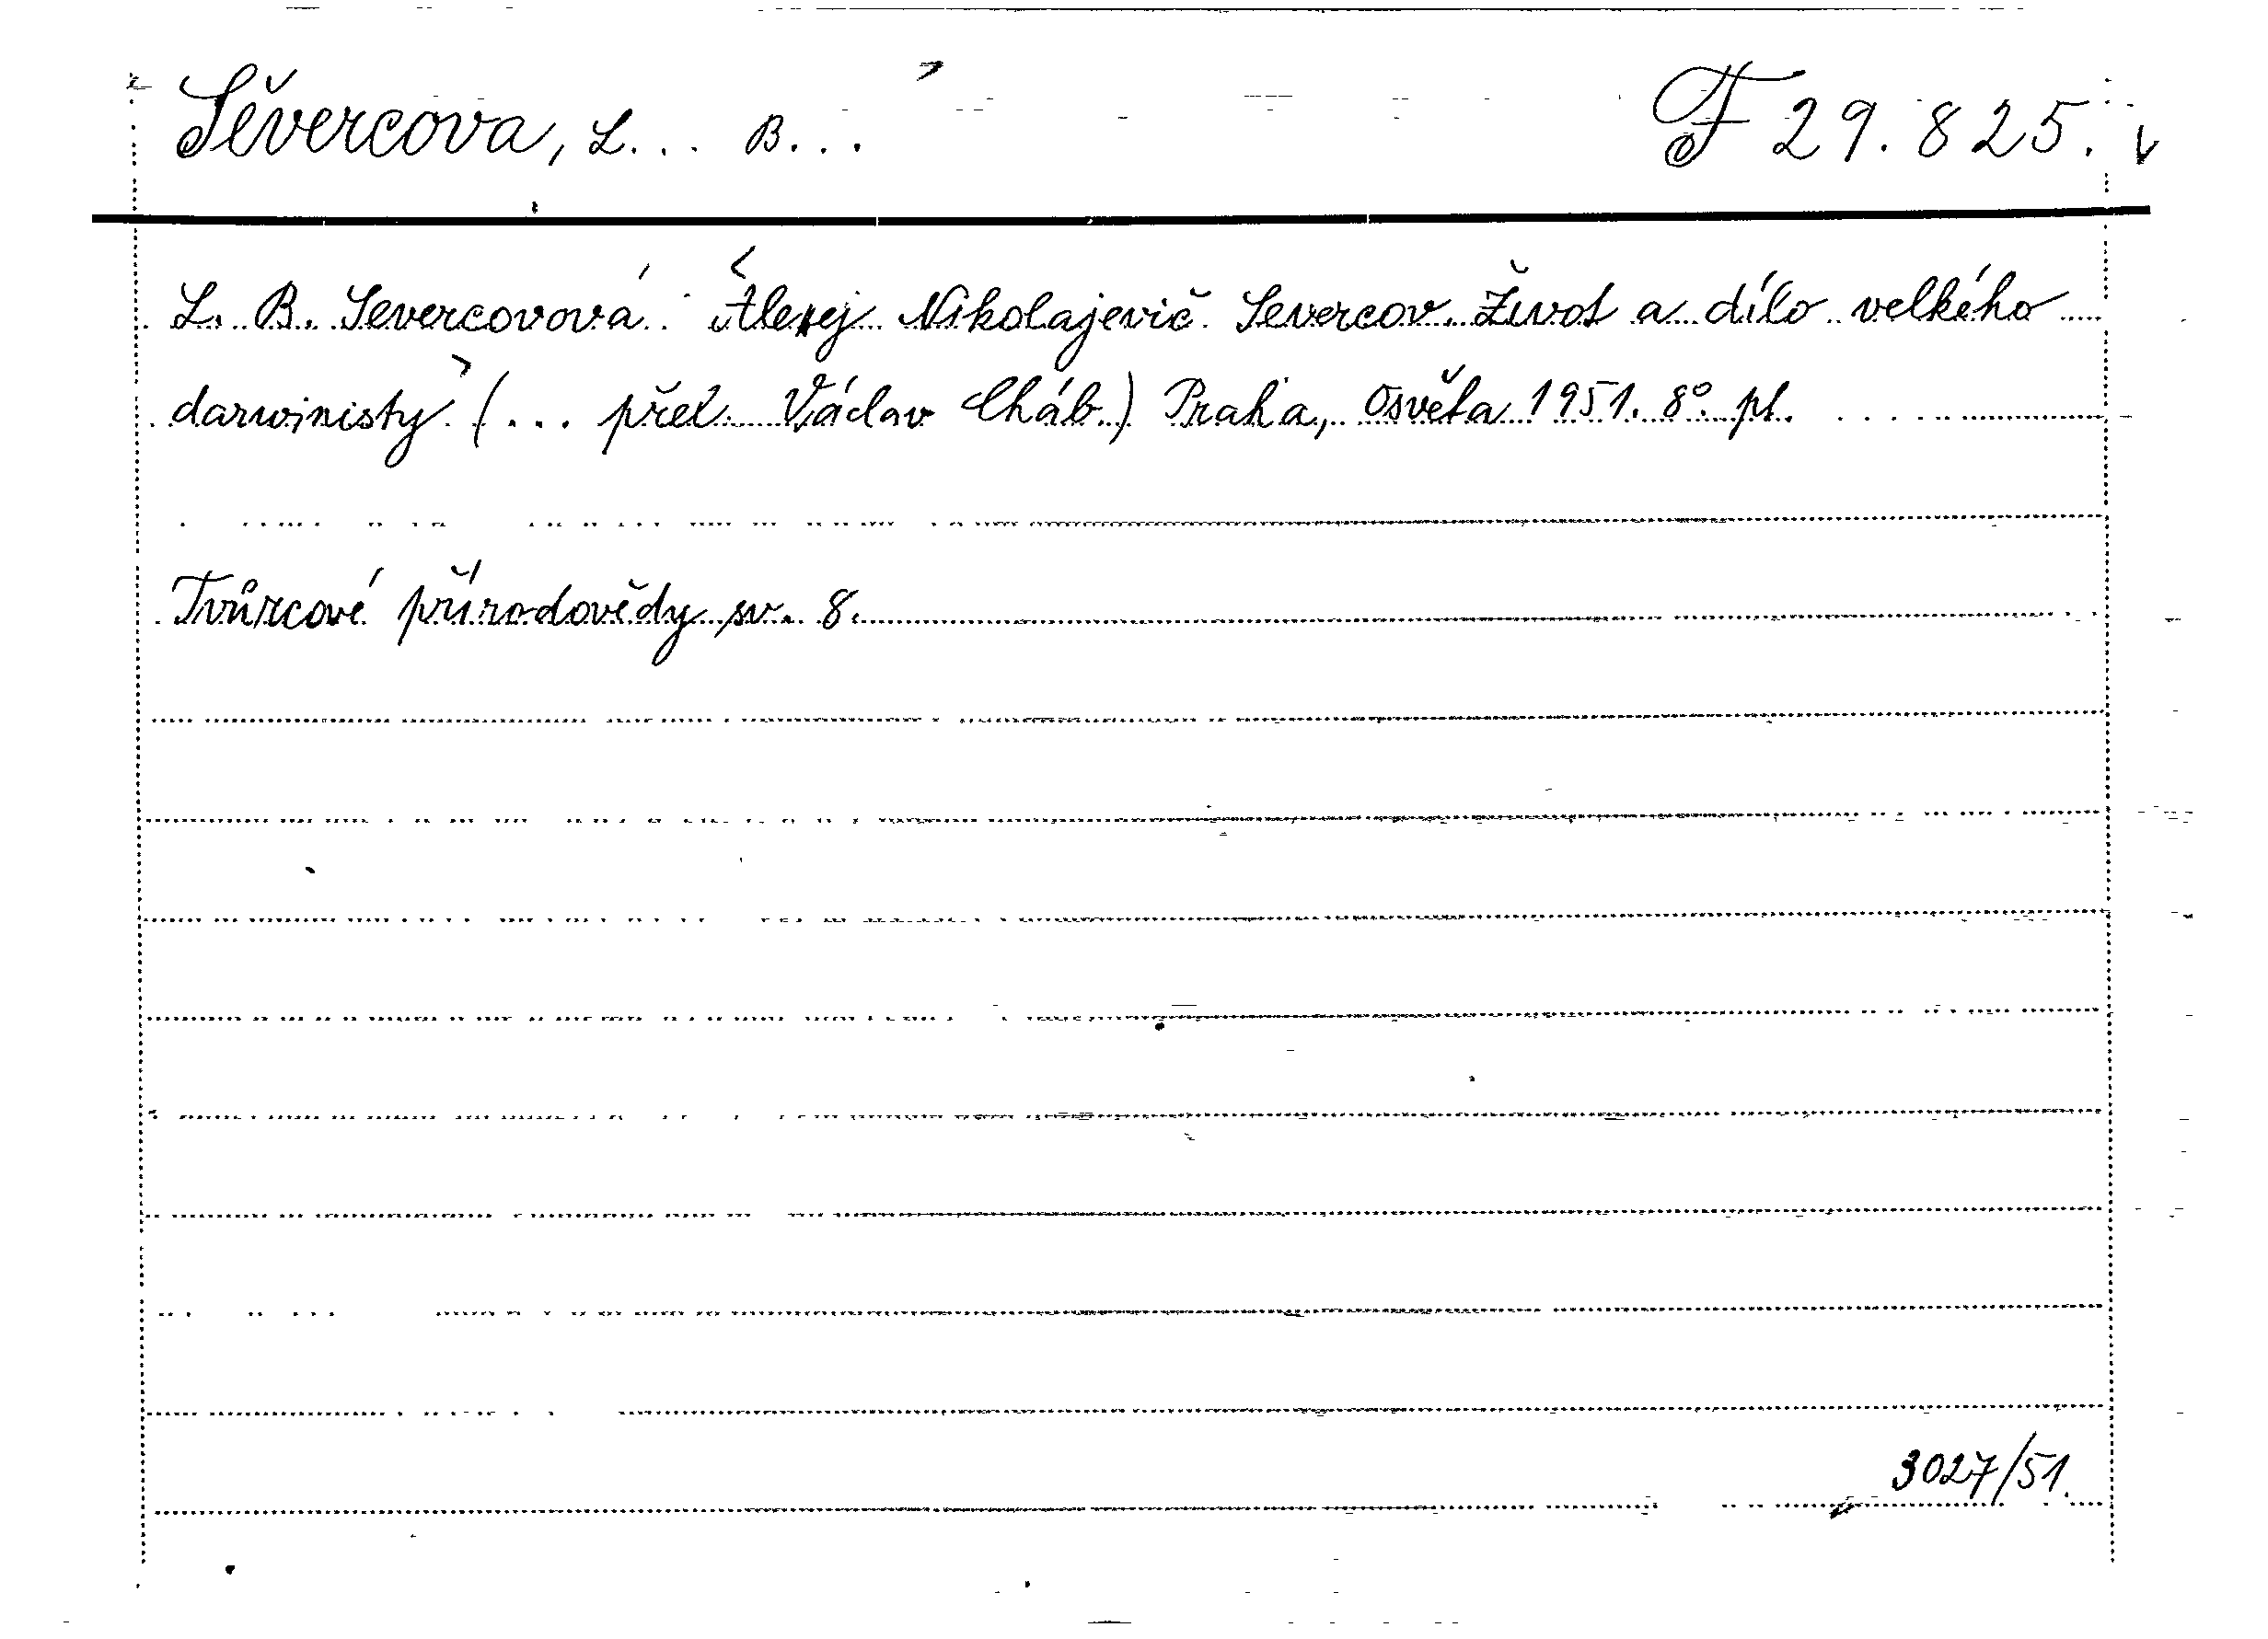 Sěvercova, L... B... F 29.825. v
L. B. Severcovová: <Alexej Nikolajevič Severcov. Život a dílo velkého
darwinisty> (... přel. Václav Cháb) Praha, Osvěta 1951. 8°. pl.
Tvůrcové přírodovědy sv. 8.
3027/51.